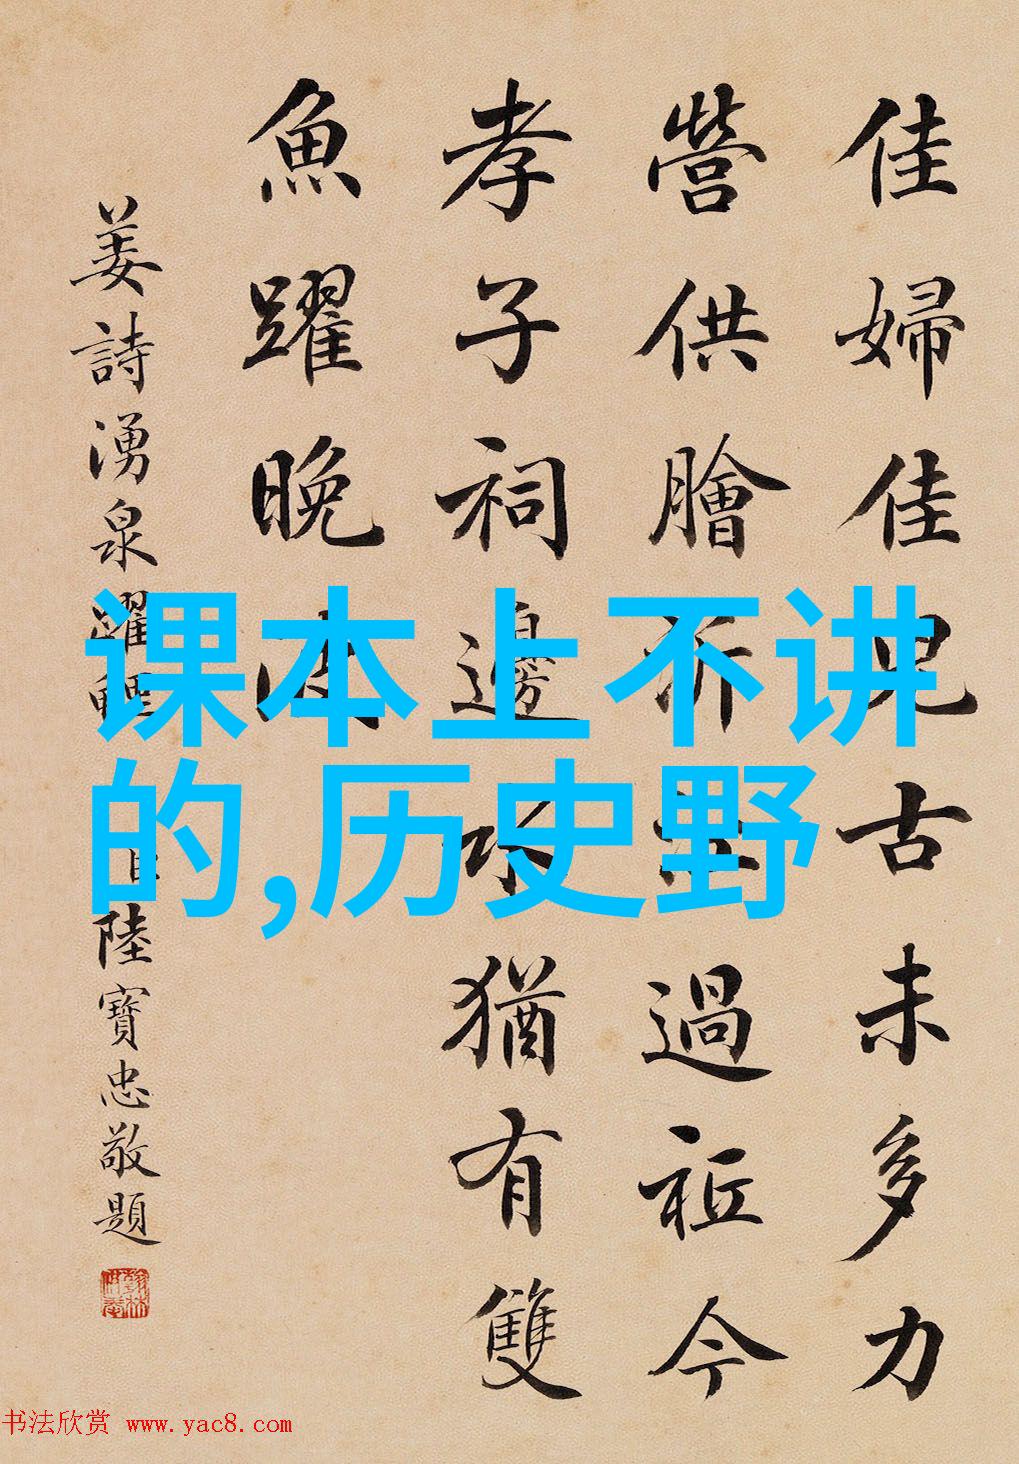 佳婦佳兒古未多力
營供膾 過祉今
孝子祠邊 猶有雙
魚躍晚
姜詩湧泉躍鯉 陸寶忠敬題
课本上不讲
的,历史野
书法欣赏 www.yac8.com